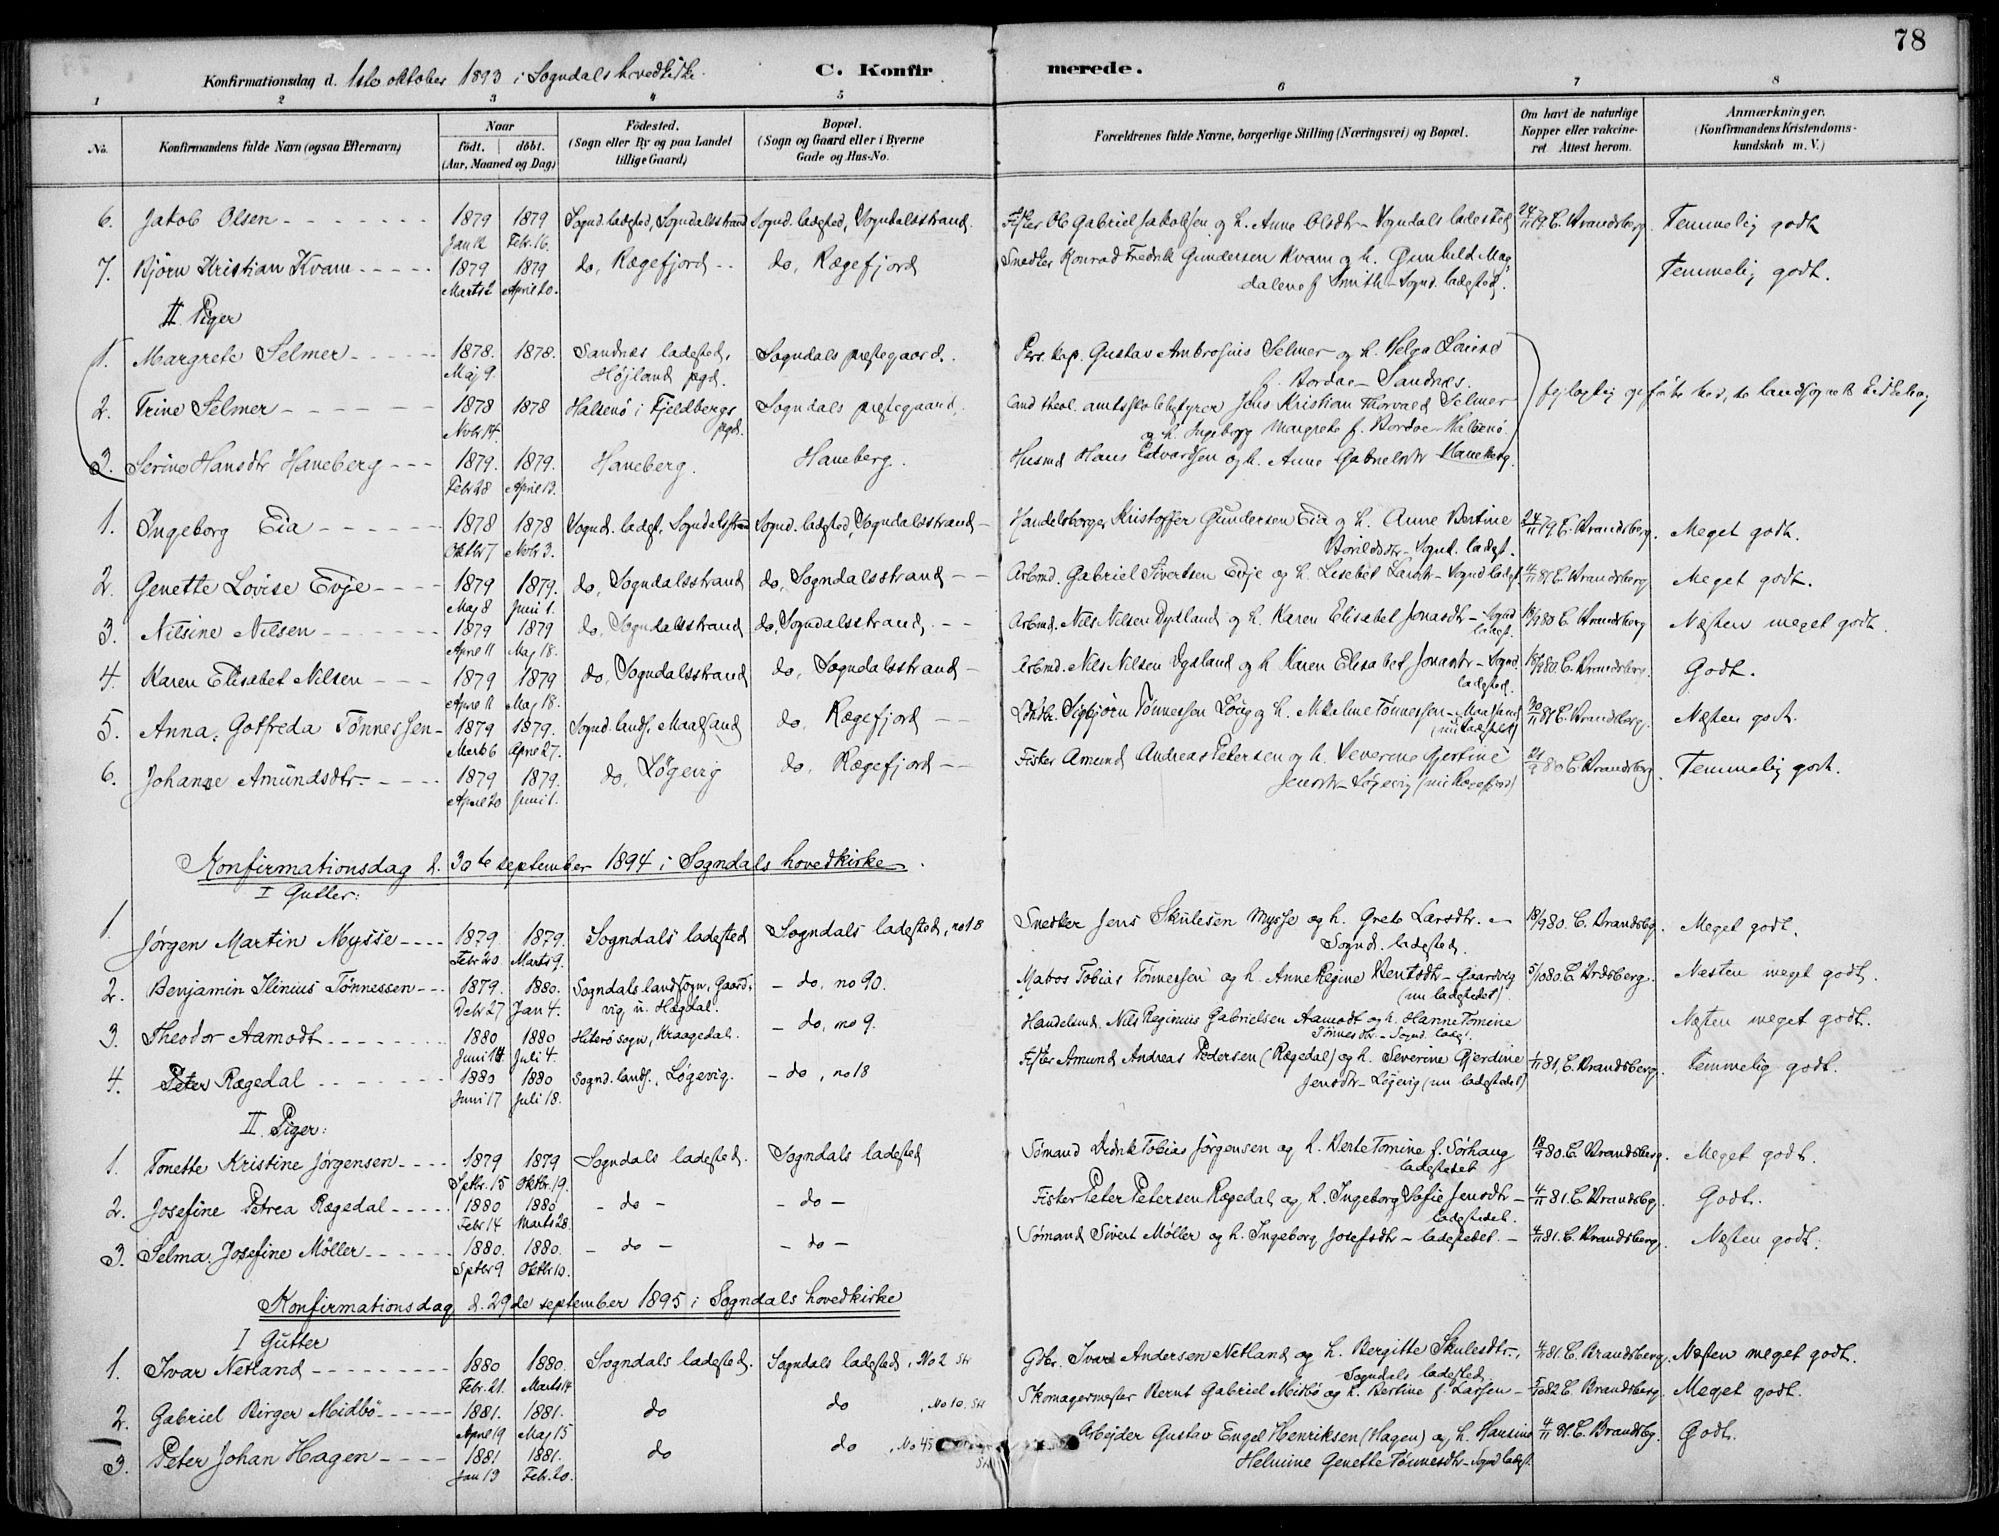 78
Konfirmationsdag d. 1ste oktober 1893 i Sogndals hovedkirke.
C. Konfirmerede.
1 2 3 4 5 6 7 8
No.
Konfirmandens fulde Navn (ogsaa Efternavn)
Naar
født. døbt.
(Aar, Maaned og Dag)
Fødested.
(Sogn eller By og paa Landet
tillige Gaard)
Bopæl.
(Sogn og Gaard eller i Byerne
Gade og Hus-No.
Forældrenes fulde Navne, borgerlige Stilling (Næringsvei) og Bopæl.
Om havt de naturlige
Kopper eller vakcine-
ret. Attest herom.
Anmærkninger.
(Konfirmandens Kristendoms-
kundskab m. V.)
6. Jakob Olsen 1879 1879 Sognd. ladested, Sogndalsstrand Sognd. ladested, Sogndalsstrand. Fisker Ole Gabriel Jakobsen og h. Anne Olsdtr - Sogndals ladested 24/11 79 C. Brandsberg. Temmelig godt
Jan 12 Febr. 16.
7. Bjørn Kristian Kvam 1879 1879 do, Rægefjord do, Rægefjord Snedker Konrad Fredrik Gundersen Kvam og h. Gunhild Mag- Temmelig godt.
Marts 2 April 20. dalene f. Smith - Sognd. ladested.
II. Piger
1. Margrete Selmer 1878. 1878. Sandnæs ladested, Sogndals præstegaard. Pers. kap. Gustav Ambrosius Selmer og h. Helga Louise
Maj 9. Højland pgd. f. Bordoe - Sandnæs.
2. Trine Selmer 1878 1878 Halsenø i Fjeldbergs Sogndals præstegaard. Cand. theol. amtsskolebestyrer Jens Kristian Thorvald Selmer fejlagtig opført her, se landsognets
Novbr 14. pgd. og h. Ingeborg Margrete f. Bordoe - Halsenø.
3. Serine Hansdtr Haneberg 1879. 1879. Haneberg. Haneberg. Husmd Hans Edvardsen og h. Anne Gabrielsdtr Haneberg.
Febr 28 April 13.
1. Ingeborg Eia 1878 1878 Sognd. ladest. Sogndalsstrand Sognd. ladested, Sogndalsstrand Handelsborger Kristoffer Gundersen Eia og h. Anne Bertine 24/11 79 C. Brandsberg. Meget godt.
Oktbr 7 Novbr 3. Torildsdtr - Sognd. ladest.
2. Genette Lovise Evje 1879 1879. do, Sogndalsstrand do, Sogndalsstrand Arbmd. Gabriel Sivertsen Evje og h. Lisebet Larsdtr - Sognd ladest. 4/11 81 C. Brandsberg Meget godt.
Maj 8 Juni 1.
3. Nilsine Nilsen 1879 1879 do, Sogndalsstrand do, Sogndalsstrand. Arbmd. Nils Nilsen Dydland og h. Karen Elisabet Jonasdtr - Sognd 18/9 80 C. Brandsberg Næsten meget godt.
April 11 Maj 18. ladest.
4. Karen Elisabet Nilsen 1879 1879 do, Sogndalsstrand do, Sogndalsstrand Arbmd. Nils Nilsen Dydland og h. Karen Elisabet Jonasdtr - Sognd. 18/9 80. C. Brandsberg. Godt.
April 11 Maj 18. ladested.
5. Anna Gotfreda Tønnessen 1879 1879. Sognd. lands. Maalsand do, Rægefjord Sigbjørn Tønnessen og h. Tønnessen - Maalsand 30/11 81 C. Brandsberg. Næsten godt.
Marts 6 April 27. (nu ladestedet)
6. Johanne Amundsdtr 1879 1879. do, Løgevig do, Rægefjord Fisker Amund Andreas Petersen og h. Severine Gjertine 21/9 80 C. Brandsberg. Temmelig godt.
April 20 Juni 1. Jensdtr - Løgevig (nu Rægefjord)
Konfirmationsdag d. 30te september 1894 i Sogndals hovedkirke.
I Gutter:
1. Jørgen Martin Mysse 1879. 1879. Sogndals ladested Sogndals ladested, no 18 Snedker Jens Skulesen Mysse og h. Grete Larsdtr. 18/9 80. C. Brandsbg. Meget godt.
Febr 20 Marts 9. Sognd. ladested.
2. Benjamin Ilinius Tønnessen 1879. 1880. Sogndals landsogn, Gaard- do, no 90. Matros Tobias Tønnessen og h. Anne Regine Berntsdtr - Gaardvig 5/10 80. C. Brdsberg. Næsten meget godt.
Debr 27 Jan 4. vig u. Hægdal. (nu ladestedet).
3. Theodor Aamodt 1880 1880 Hiterø sogn, Kraagedal. do, no 9. Handelsmd. Nils Reginius Gabrielsen Aamodt og h. Hanne Tomine Næsten meget godt.
Juni 14 Juli 4. Tønnesdtr - Sognd. ladst.
4. Peter Rægedal 1880 1880 Sognd. lands., Løgevig. do, no 18 Fisker Amund Andreas Pedersen (Rægedal) og h. Severine Gjerdine 1/11 81, C. Brandsberg. Temmelig godt.
Juni 17 Juli 18. Jensdtr - Løgevig (nu ladestedet)
II. Piger:
1. Tonette Kristine Jørgensen 1879 1879 Sogndals ladested. Sogndals ladested Sømand Tobias Jørgensen og h. Berte Tomine f. Sørhaug 18/9 80. C. Brandsberg. Meget godt.
Septbr. 15 Oktbr. 19. ladestedet
2. Josefine Petrea Rægedal 1880 1880 - do - - do - Fisker Peter Petersen Rægedal og h. Ingeborg Sofie Jensdtr - 4/11 81. C. Brandsbg. Godt.
Febr 14 Marts 28. ladestedet.
3. Selma Josefine Møller 1880. 1880. - do - - do - Sømand Sivert Møller og h. Ingeborg Josefsdtr - ladestedet. - 4/11 81. C. Brandsberg. Næsten godt.
Septbr 9 Oktbr 10.
Konfirmationsdag d. 29de september 1895 i Sogndals hovedkirke
I Gutter
1. Ivar Netland 1880 1880. Sogndals ladested. Sogndals ladested, No 2 Str Gbr. Ivar Andersen Netland og h. Bergitte Skulesdtr., 4/11 81. C. Brandsberg. Næsten meget godt.
Febr. 21. Marts 14 Sogndals ladested
2. Gabriel Birger Midbø 1881. 1881. do do, No 10. Str Skomagermester Bernt Gabriel Midbø og h. Bertine f. Larsen - 5/10 82 C. Brandsberg. Meget godt.
April 19 Maj 15
3. Peter Johan Hagen 1881 1881. do do, No 45 Arbejder Gustav Engel Henriksen (Hagen) og h. Hansine 4/11 81. C. Brandsbg. Godt.
Jan 13 Febr. 20. Str Helmine Genette Tønnesdtr - Sognd ladest.